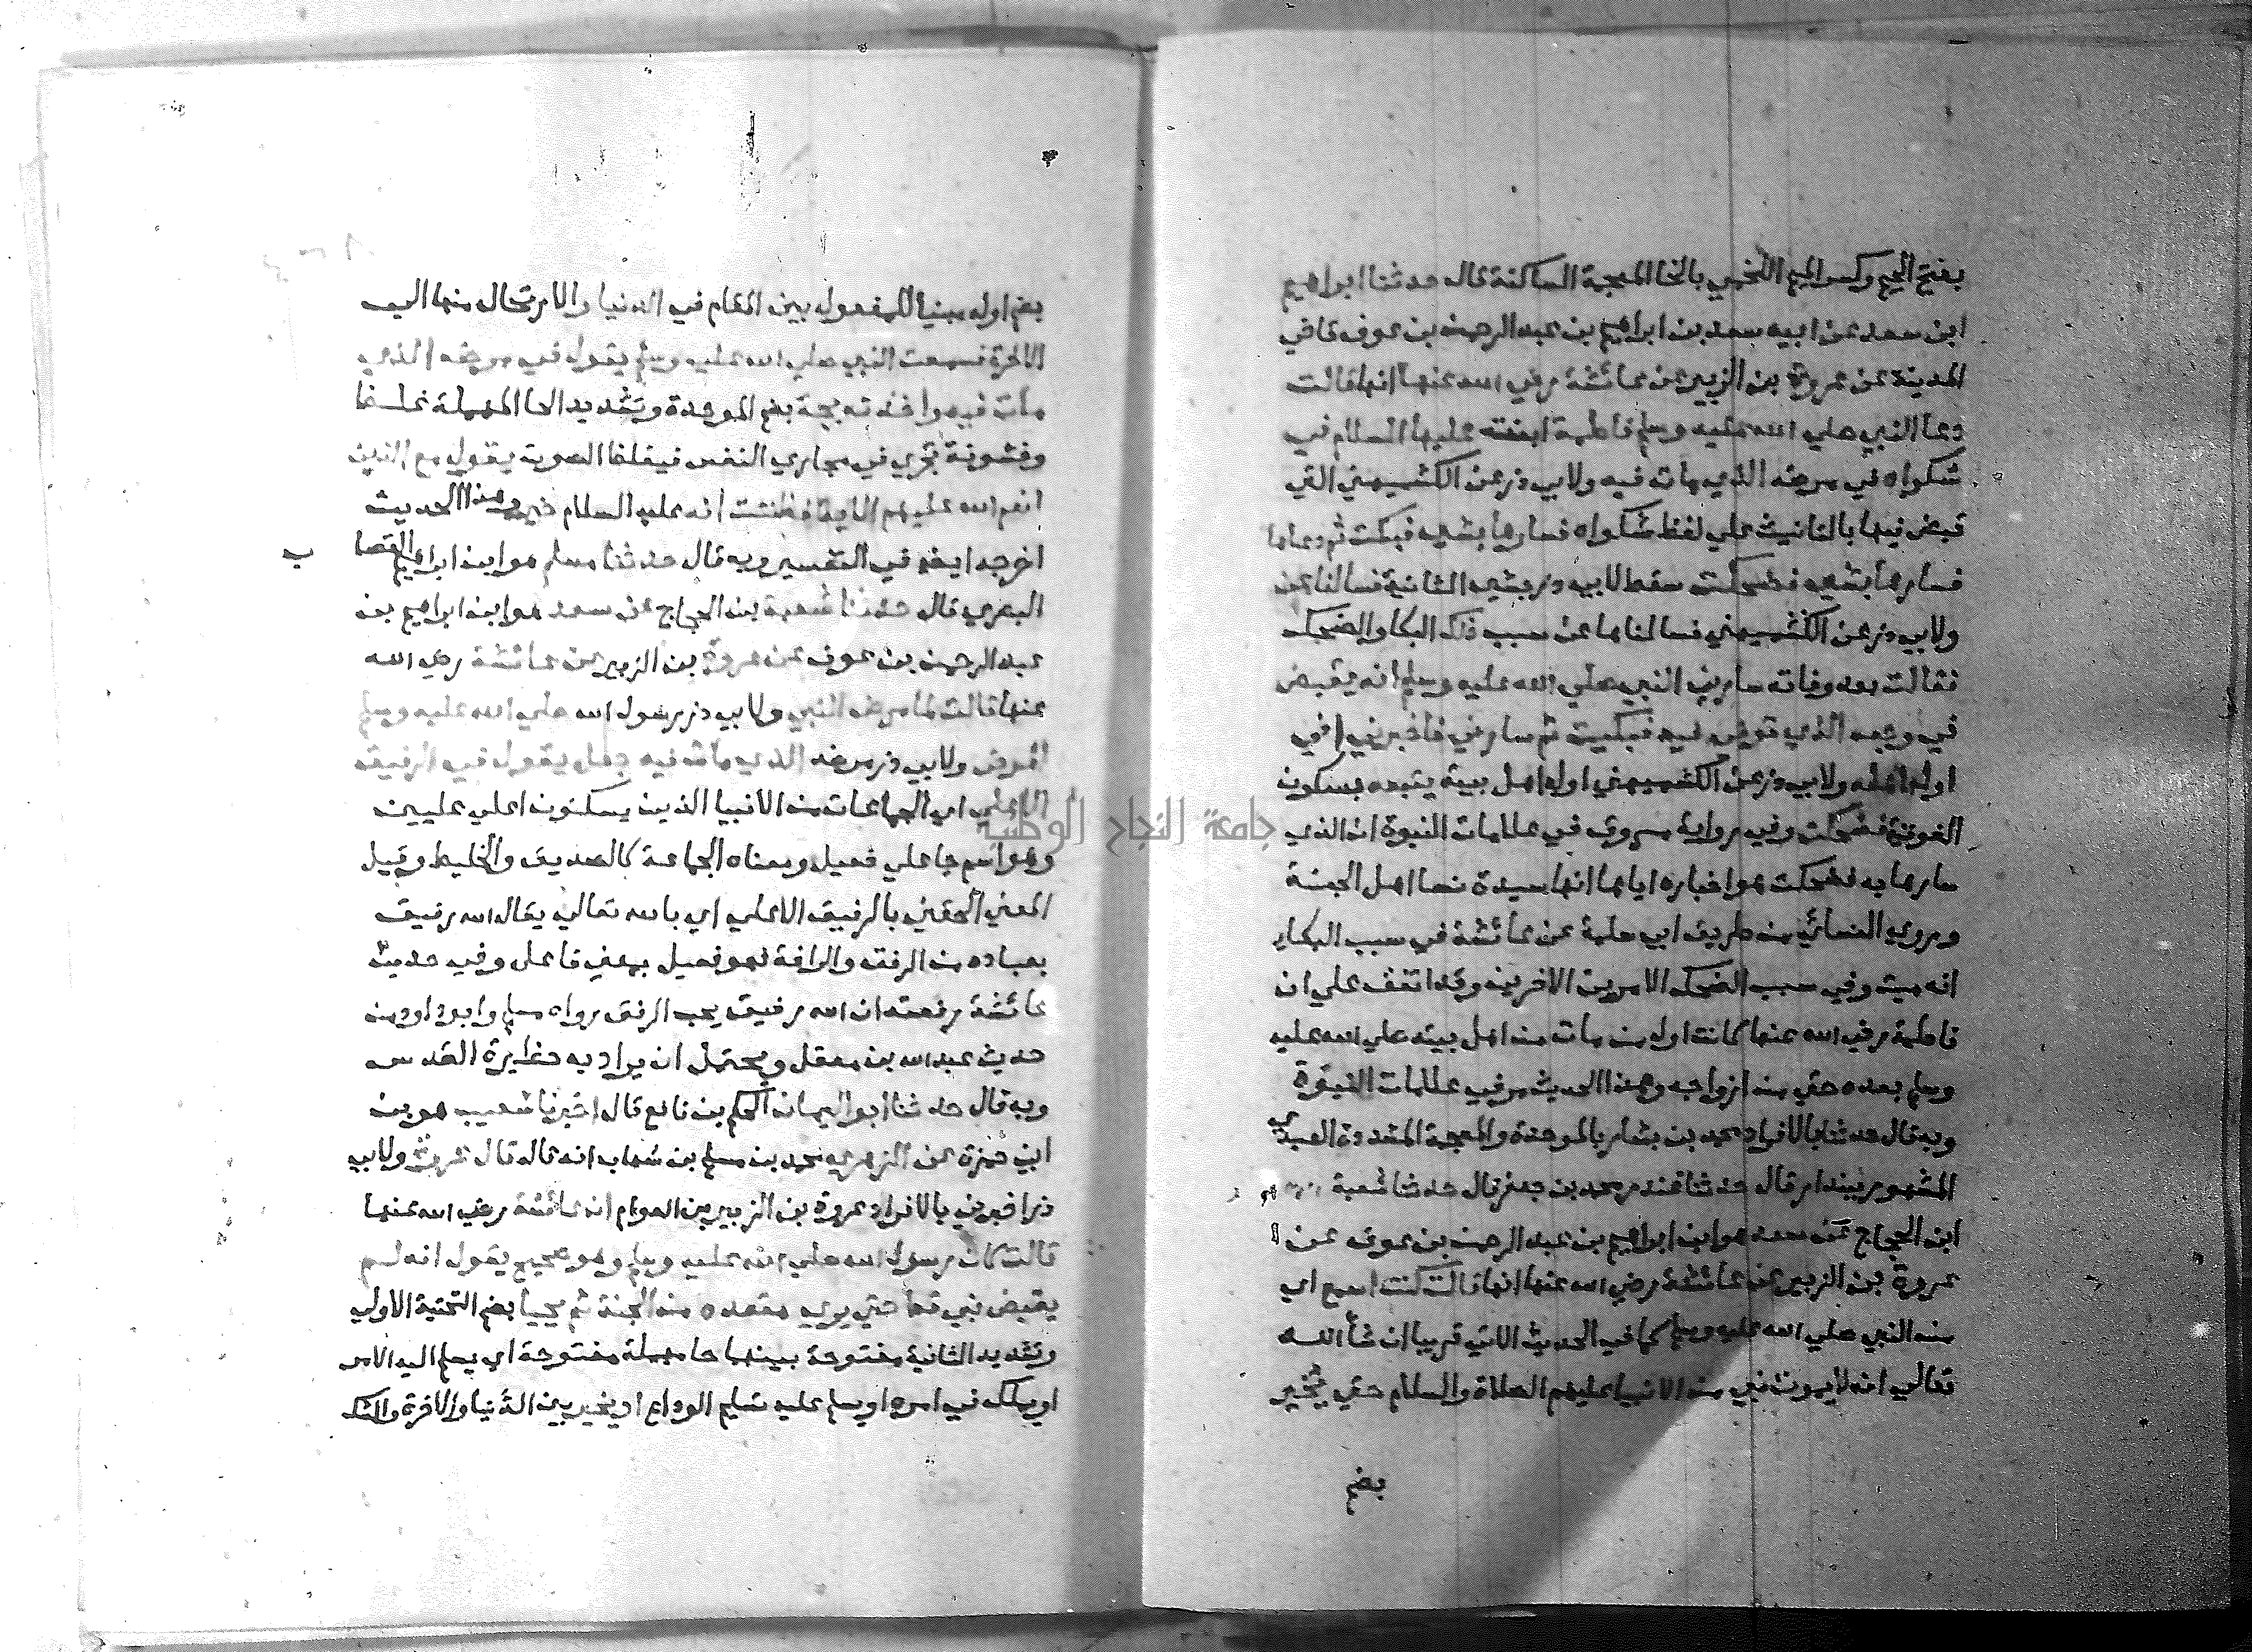 بفتح الجيم وكسر الميم اللخمي بالخا المعجمة الساكنة قال حدثنا ابراهيم
ابن سعد عن ابيه سعد بن ابراهيم بن عبد الرحمن بن عوف قاضي
المدينة عن عروة بن الزبير عن عائشة رضي الله عنها انها قالت
دعا النبي صلي الله عليه وسلم فاطمة ابنته عليها السلام في
شكواه في مرضه الذي مات فيه ولابي ذر عن الكشميهني التي
قبض فيها بالتانيث علي لفظ شكواه فسارها بشي فبكت ثم دعاها
فسارها بشي فضحكت سقط لابي ذر بشي الثانية فسالنا عن
ولابي ذر عن الكشميهني فسالناها عن سبب ذلك البكا والضحك
فقالت بعد وفاته سارني النبي صلي الله عليه وسلم انه يقبض
في وجعه الذي توفي فيه فبكيت ثم سارني فاخبرني اني
اول اهله ولابي ذر عن الكشميهني اول اهل بيته يتبعه بسكون
الفوقية فضحكت وفي رواية مسروق في علامات النبوة ان الذي
سارها به فضحكت هو اخباره اياها انها سيدة نسا اهل الجنة
وروي النسائي من طريق ابي سلمة عن عائشة في سبب البكا
انه ميت وفي سبب الضحك الامرين الاخرين وقد اتفق علي ان
فاطمة رضي الله عنها كانت اول من مات من اهل بيته صلي الله عليه
وسلم بعده حتي من ازواجه وهذا الحديث مر في علامات النبوة
وبه قال حدثنا بالافراد محمد بن بشار بالموحدة والمعجمة المشددة العبدي
المشهور ببندار قال حدثنا غندر محمد بن جعفر قال حدثنا شعبة
ابن الحجاج عن سعد هو ابن ابراهيم بن عبد الرحمن بن عوف عن
عروة بن الزبير عن عائشة رضي الله عنها انها قالت كنت اسمع اي
من النبي صلي الله عليه وسلم كما في الحديث الاتي قريبا ان شا الله
تعالي انه لا يموت نبي من الانبيا عليهم الصلاة والسلام حتي يخير
بضم
بضم اوله مبنيا للمفعول بين المقام في الدنيا والارتحال منها الي
الاخرة فسمعت النبي صلي الله عليه وسلم يقول في مرضه الذي
مات فيه واخذته بحة بضم الموحدة وتشديد الحا المهملة غلظ
وخشونة تجري في مجاري النفس فيغلظ الصوت يقول مع الذين
انعم الله عليهم الاية فظننت انه عليه السلام خير وهذا الحديث
اخرجه ايضا في التفسير وبه قال حدثنا مسلم هو ابن ابراهيم القصا
ب
البصري قال حدثنا شعبة بن الحجاج عن سعد هو ابن ابراهيم بن
عبد الرحمن بن عوف عن عروة بن الزبير عن عائشة رضي الله
عنها قالت لما مرض النبي ولابي ذر رسول الله صلي الله عليه وسلم
المرض ولابي ذر مرضه الذي مات فيه جعل يقول في الرفيق
الاعلي اي الجماعات من الانبيا الذين يسكنون اعلي عليين
وهو اسم جا علي فعيل ومعناه الجماعة كالصديق والخليط وقيل
المعني الحقني بالرفيق الاعلي اي بالله تعالي يقال الله رفيق
بعباده من الرفق والرافة فهو فعيل بمعني فاعل وفي حديث
عائشة رفعته ان الله رفيق يحب الرفق رواه مسلم وابو داود من
حديث عبد الله بن مغفل ويحتمل ان يراد به حظيرة القدس
وبه قال حدثنا ابو اليمان الحكم بن نافع قال اخبرنا شعيب هو بن
ابي حمزة عن الزهري محمد بن مسلم بن شهاب انه قال قال عروة ولابي
ذر اخبرني بالافراد عروة بن الزبير بن العوام ان عائشة رضي الله عنها
قالت كان رسول الله صلي الله عليه وسلم وهو صحيح يقول انه لم
يقبض نبي قط حتي يري مقعده من الجنة ثم يحيا بضم التحتية الاولي
وتشديد الثانية مفتوحة بينهما حا مهملة مفتوحة اي يسلم اليه الامر
او يملك في امره او يسلم عليه تسليم الوداع او يخير بين الدنيا والاخرة والشك
جامعة النجاح الوطنية